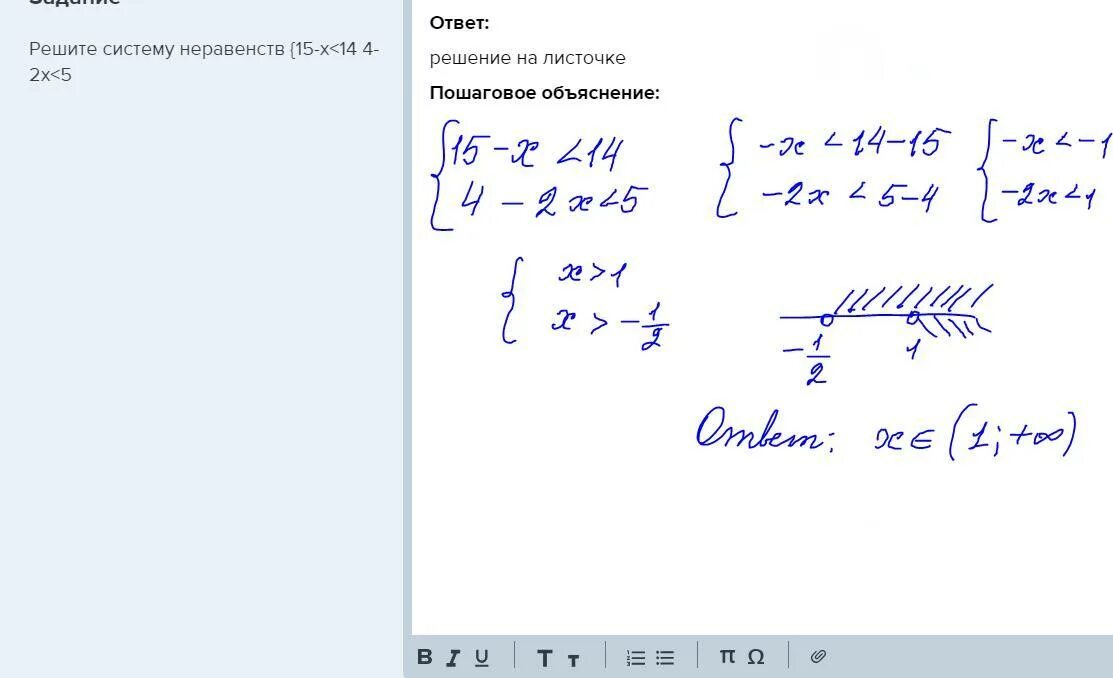 Задание
Решите систему неравенств {15-x<14 4-
2x<5
Ответ:
решение на листочке
Пошаговое объяснение:
{15-x<14
4-2x<5
{-x<14-15
-2x<5-4
{-x<-1
-2x<1
{x>1
x>-1/2
-1/2 1
Ответ: x∈(1;+∞)
B I U T т π Ω